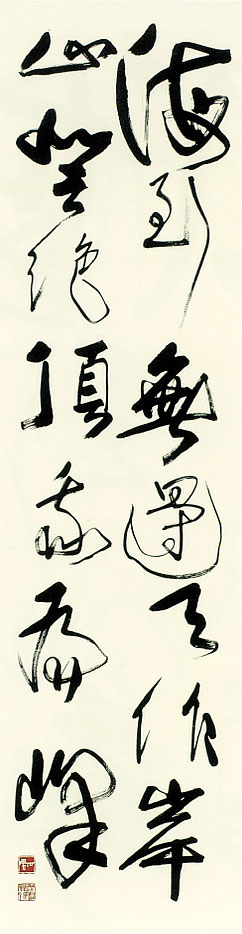 海到無邊天作岸
山登絕頂我為峰